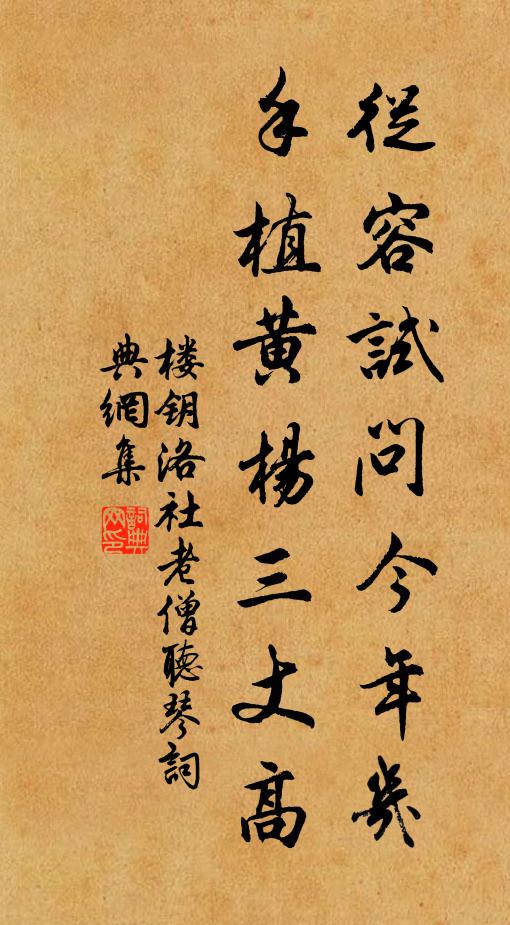 從容試問今年幾
手植黄楊三丈高
楼钥洛社老僧聽琴詞
典網集
詞典
网印